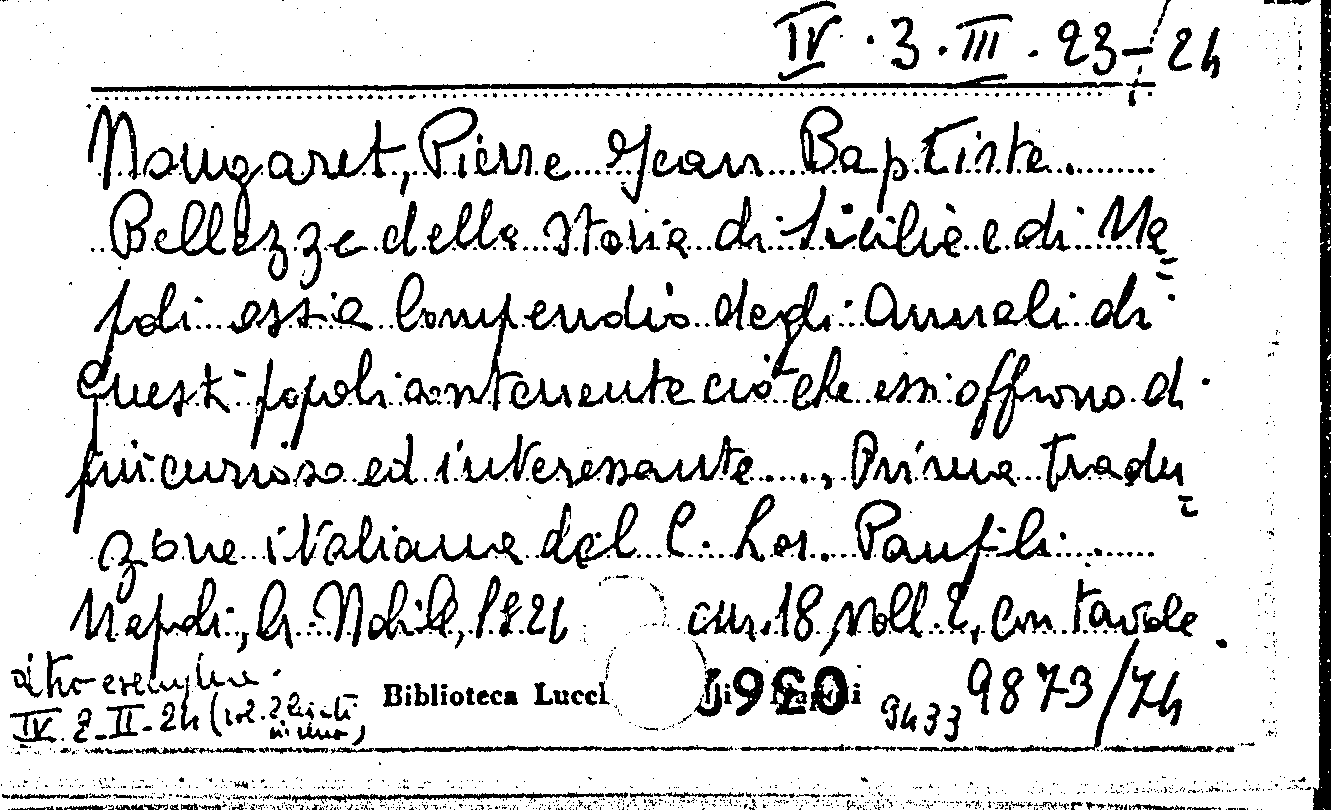 IV . 3 . III . 23-24
Nougaret, Pierre Jean Baptiste.
Bellezze della storia di Sicilia e di Na=
poli ossia Compendio degli Annali di
questi popoli contenente ciò che essi offrono di
più curioso ed interessante..., Prima tradu=
zione italiana del C. Lor. Panfili.
Napoli, G. Nobile, 1826 cm. 18, voll. 2, con tavole.
altro esemplare.
IV. 2-II-24 (vol. 2
Biblioteca Lucch
9433 9873/74